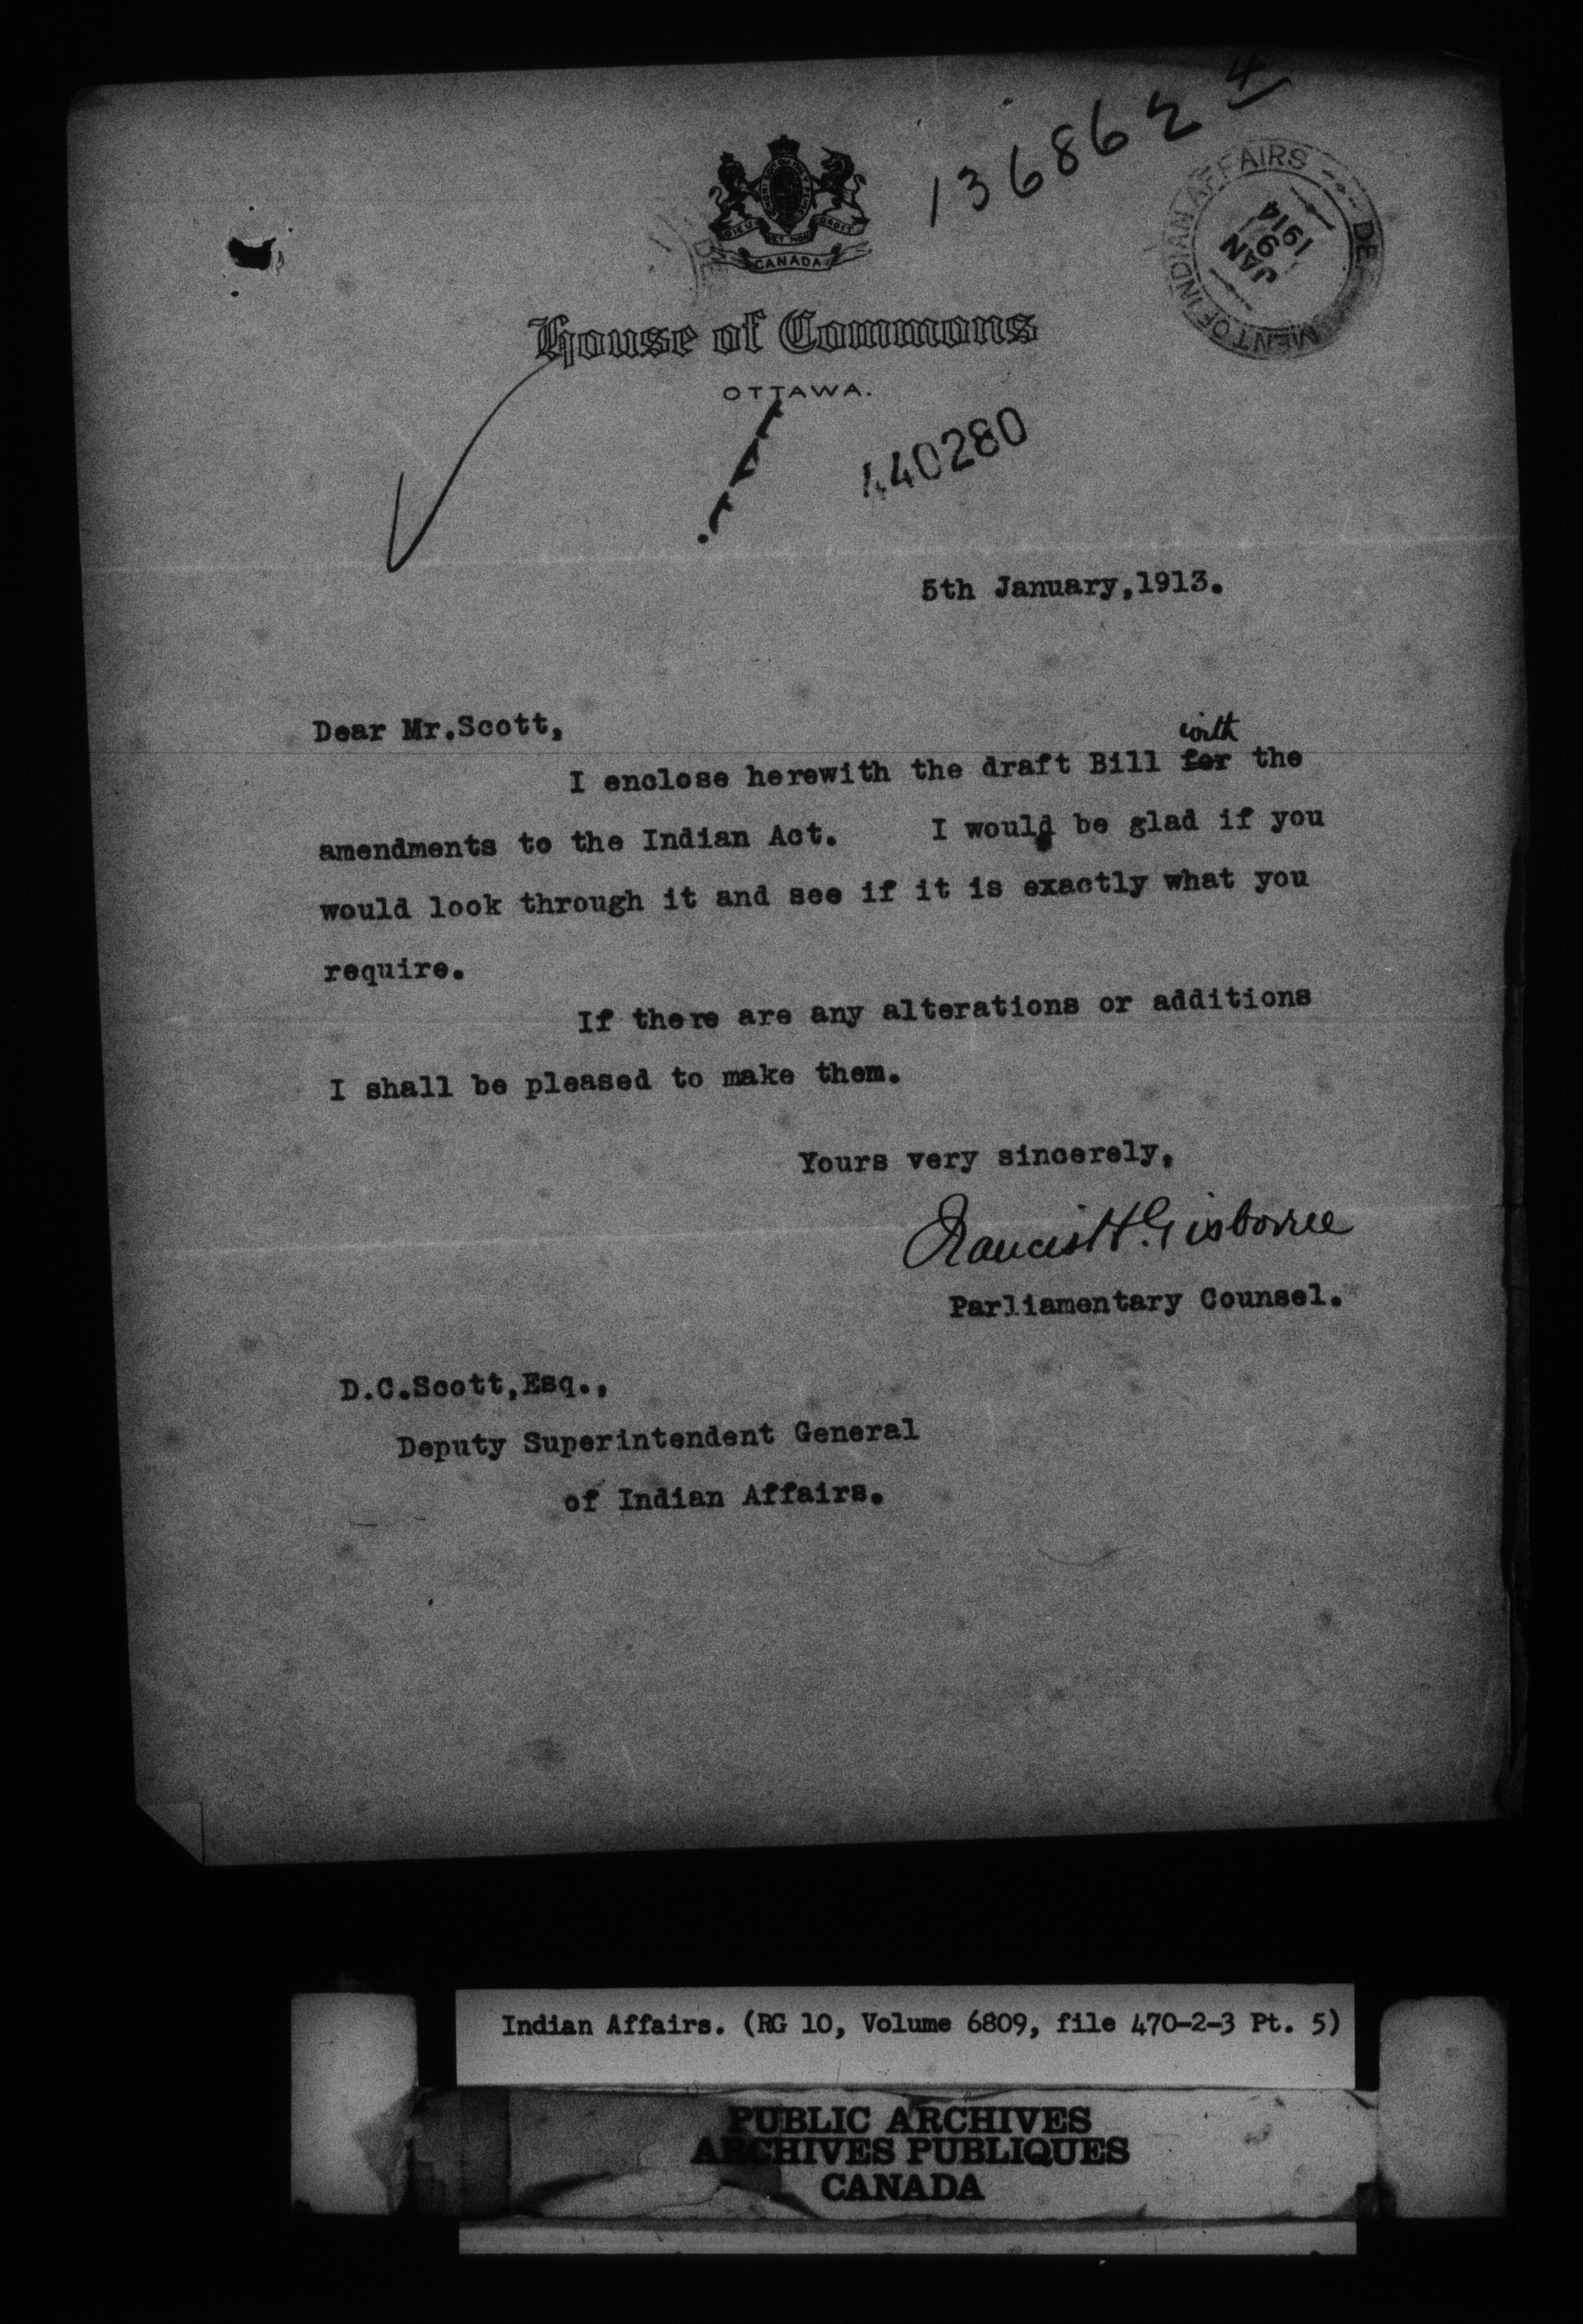 136862 4
DIEU ET MON DROIT
CANADA
DE MENT OF INDIAN AFFAIRS
JAN 9 1914
House of Commons
OTTAWA.
440280
5th January,1913.
Dear Mr.Scott,
with
I enclose herewith the draft Bill for the
amendments to the Indian Act. I would be glad if you
would look through it and see if it is exactly what you
require.
If there are any alterations or additions
I shall be pleased to make them.
Yours very sincerely,
Francis H. Gisborne
Parliamentary Counsel.
D.C.Scott,Esq.,
Deputy Superintendent General
of Indian Affairs.
Indian Affairs. (RG 10, Volume 6809, file 470-2-3 Pt. 5)
PUBLIC ARCHIVES
ARCHIVES PUBLIQUES
CANADA